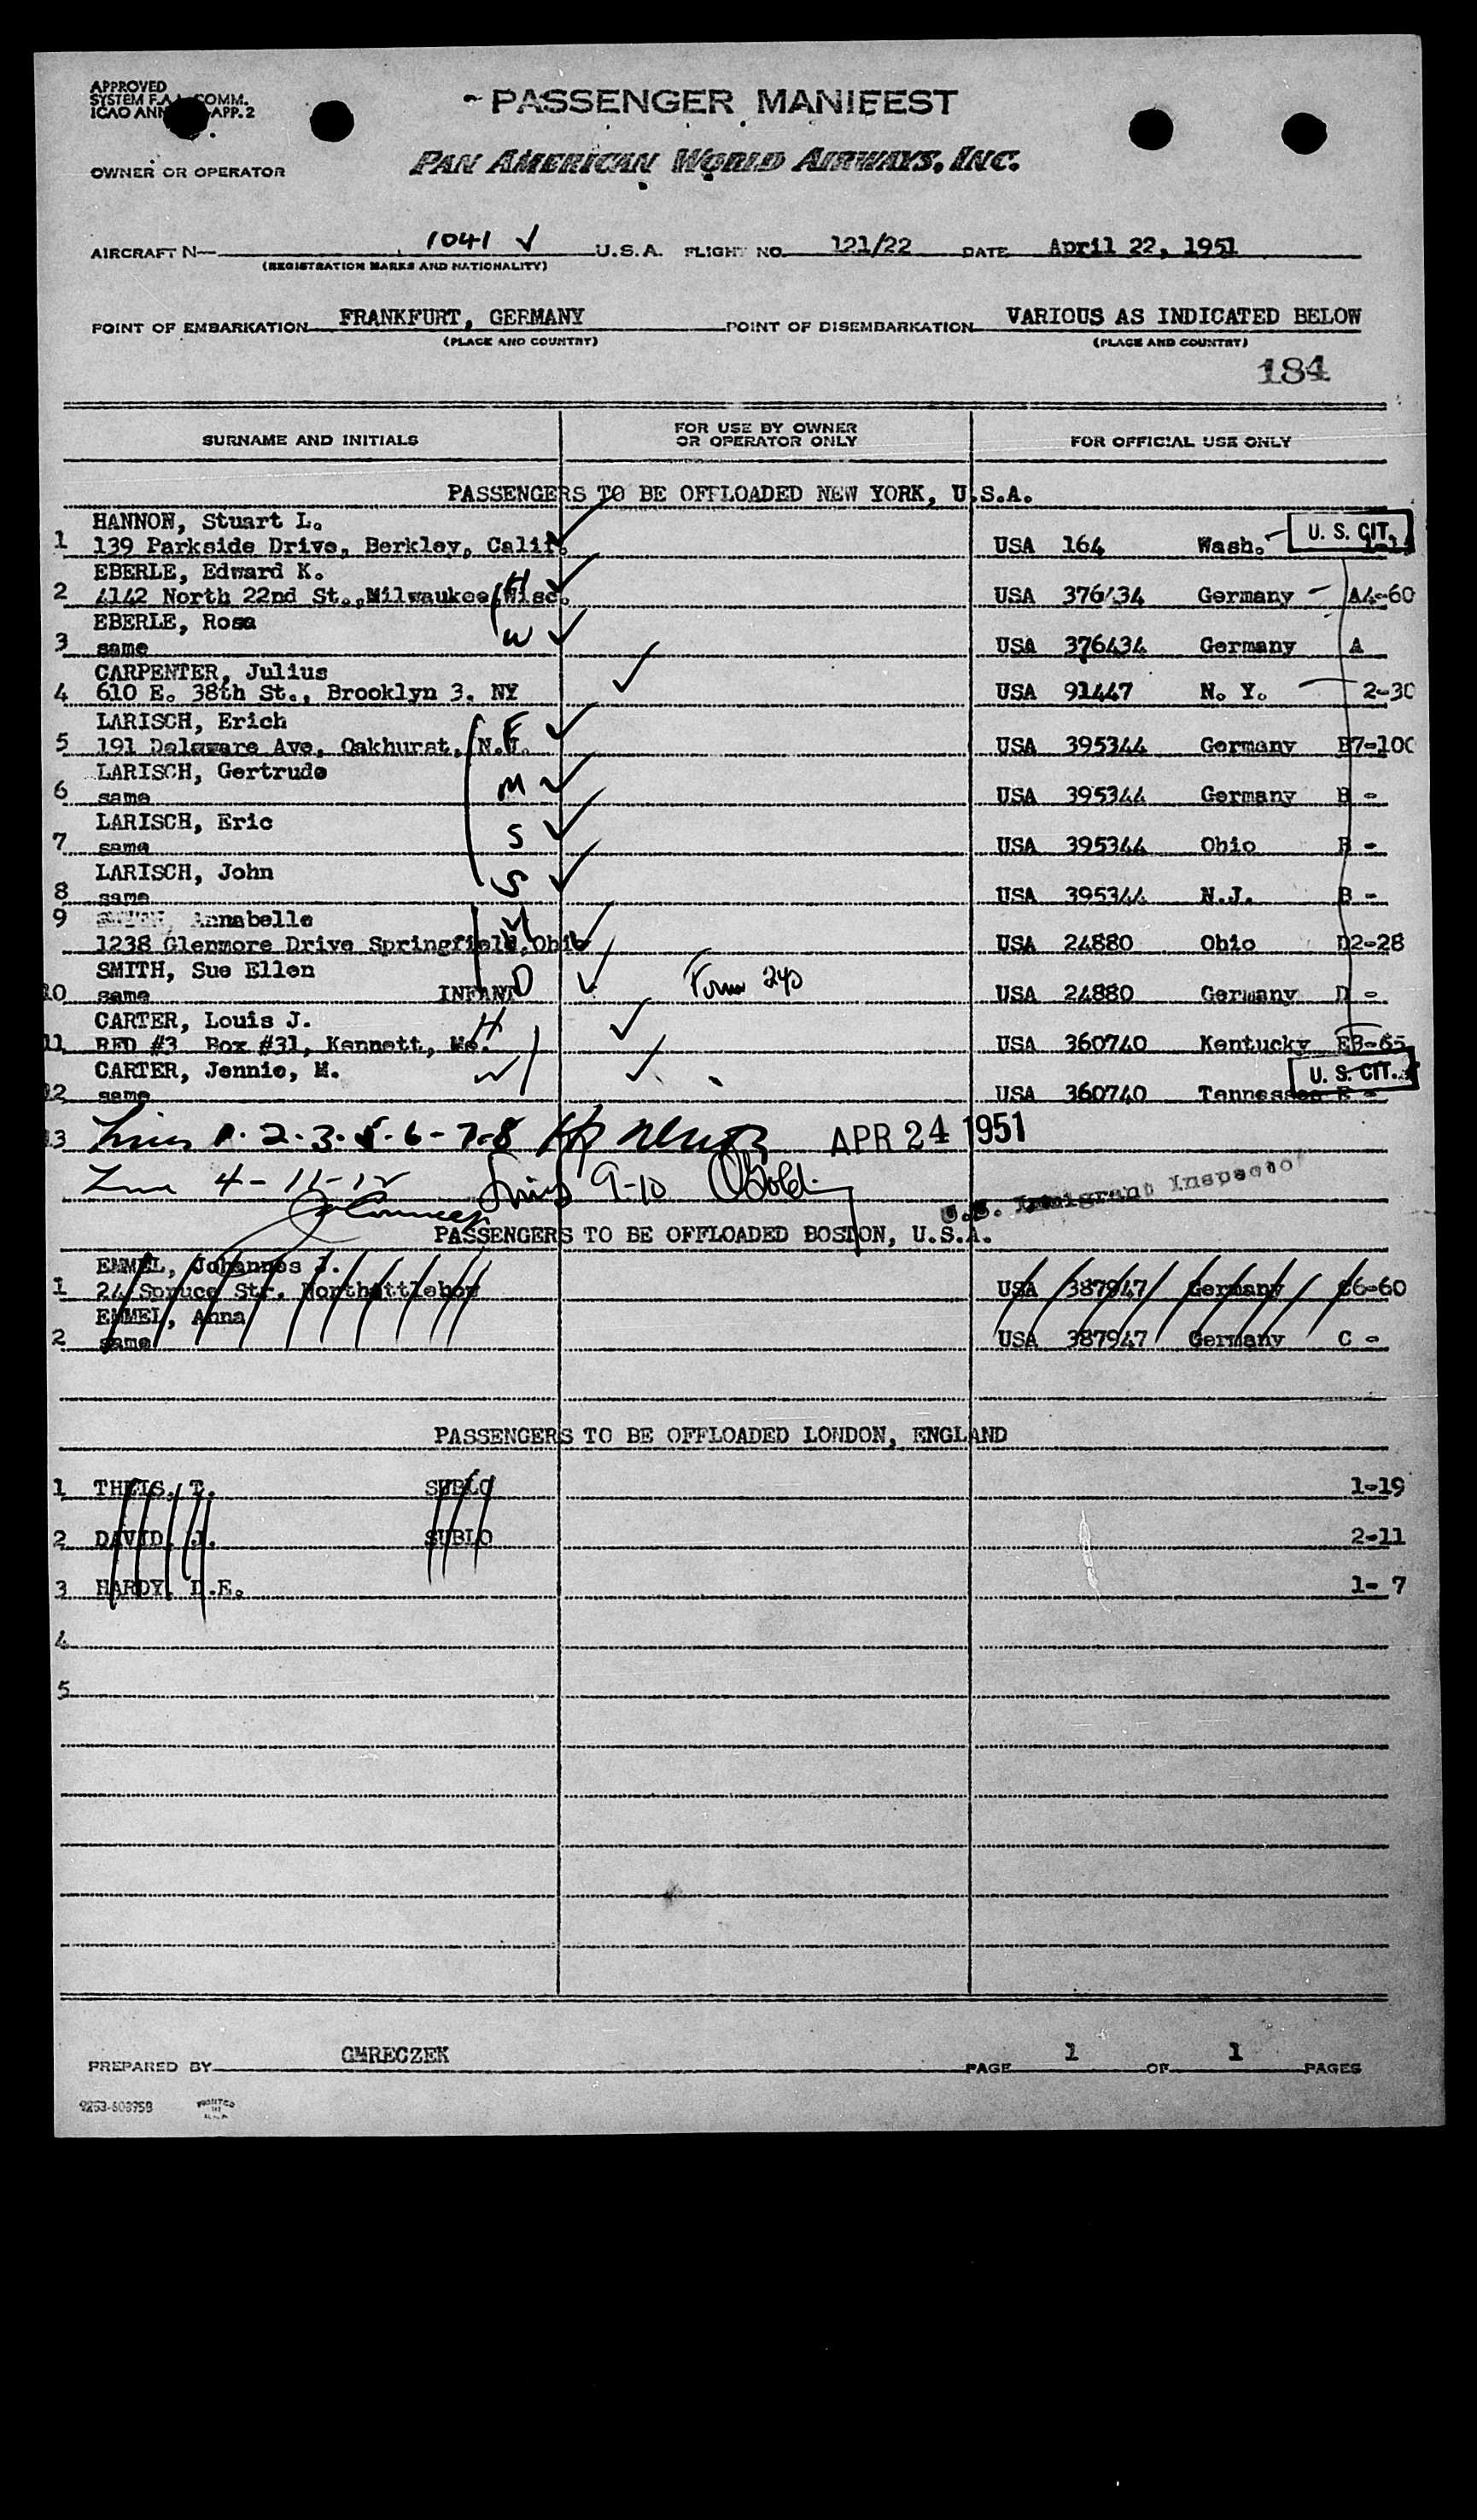 APPROVED
SYSTEM F.A.L. COMM.
ICAO ANN APP. 2
PASSENGER MANIFEST
OWNER OR OPERATOR
PAN AMERICAN WORLD AIRWAYS, INC.
AIRCRAFT N— 1041 ✓ U.S.A. FLIGHT NO. 121/22 DATE April 22, 1951
(REGISTRATION MARKS AND NATIONALITY)
POINT OF EMBARKATION FRANKFURT, GERMANY POINT OF DISEMBARKATION VARIOUS AS INDICATED BELOW
(PLACE AND COUNTRY) (PLACE AND COUNTRY)
184
SURNAME AND INITIALS FOR USE BY OWNER OR OPERATOR ONLY FOR OFFICIAL USE ONLY
PASSENGERS TO BE OFFLOADED NEW YORK, U.S.A.
HANNON, Stuart L.
1 139 Parkside Drive, Berkley, Calif. ✓ USA 164 Wash. U. S. CIT.
EBERLE, Edward K.
2 4142 North 22nd St., Milwaukee, Wisc. H ✓ USA 376434 Germany A4-60
EBERLE, Rosa
3 same W ✓ USA 376434 Germany A
CARPENTER, Julius
4 610 E. 38th St., Brooklyn 3. NY ✓ USA 91447 N. Y. 2-30
LARISCH, Erich
5 191 Delaware Ave, Oakhurst, N.J. F ✓ USA 395344 Germany B7-100
LARISCH, Gertrude
6 same M ✓ USA 395344 Germany B -
LARISCH, Eric
7 same S ✓ USA 395344 Ohio B -
LARISCH, John
8 same S ✓ USA 395344 N.J. B -
9 Annabelle M
1238 Glenmore Drive Springfield, Ohio ✓ USA 24880 Ohio D2-28
SMITH, Sue Ellen
10 same INFANT D ✓ Form 240 USA 24880 Germany D -
CARTER, Louis J. H
11 RFD #3 Box #31, Kennett, Mo. ✓ USA 360740 Kentucky E3-65
CARTER, Jennie, M. W ✓ U. S. CIT.
12 same USA 360740 Tennessee E -
13 Lines 1-2-3-5-6-7-8 APR 24 1951
Line 4-11-12 Lines 9-10
U.S. Immigrant Inspector
PASSENGERS TO BE OFFLOADED BOSTON, U.S.A.
EMMEL, Johannes J.
1 24 Spruce Str. Northattlebor USA 387947 Germany C6-60
EMMEL, Anna
2 same USA 387947 Germany C -
PASSENGERS TO BE OFFLOADED LONDON, ENGLAND
1 THEIS, T. SUBLO 1-19
2 DAVID, J. SUBLO 2-11
3 HARDY, D.E. 1- 7
4
5
PREPARED BY GMRECZEK PAGE 1 OF 1 PAGES
PRINTED
IN
U.S.A.